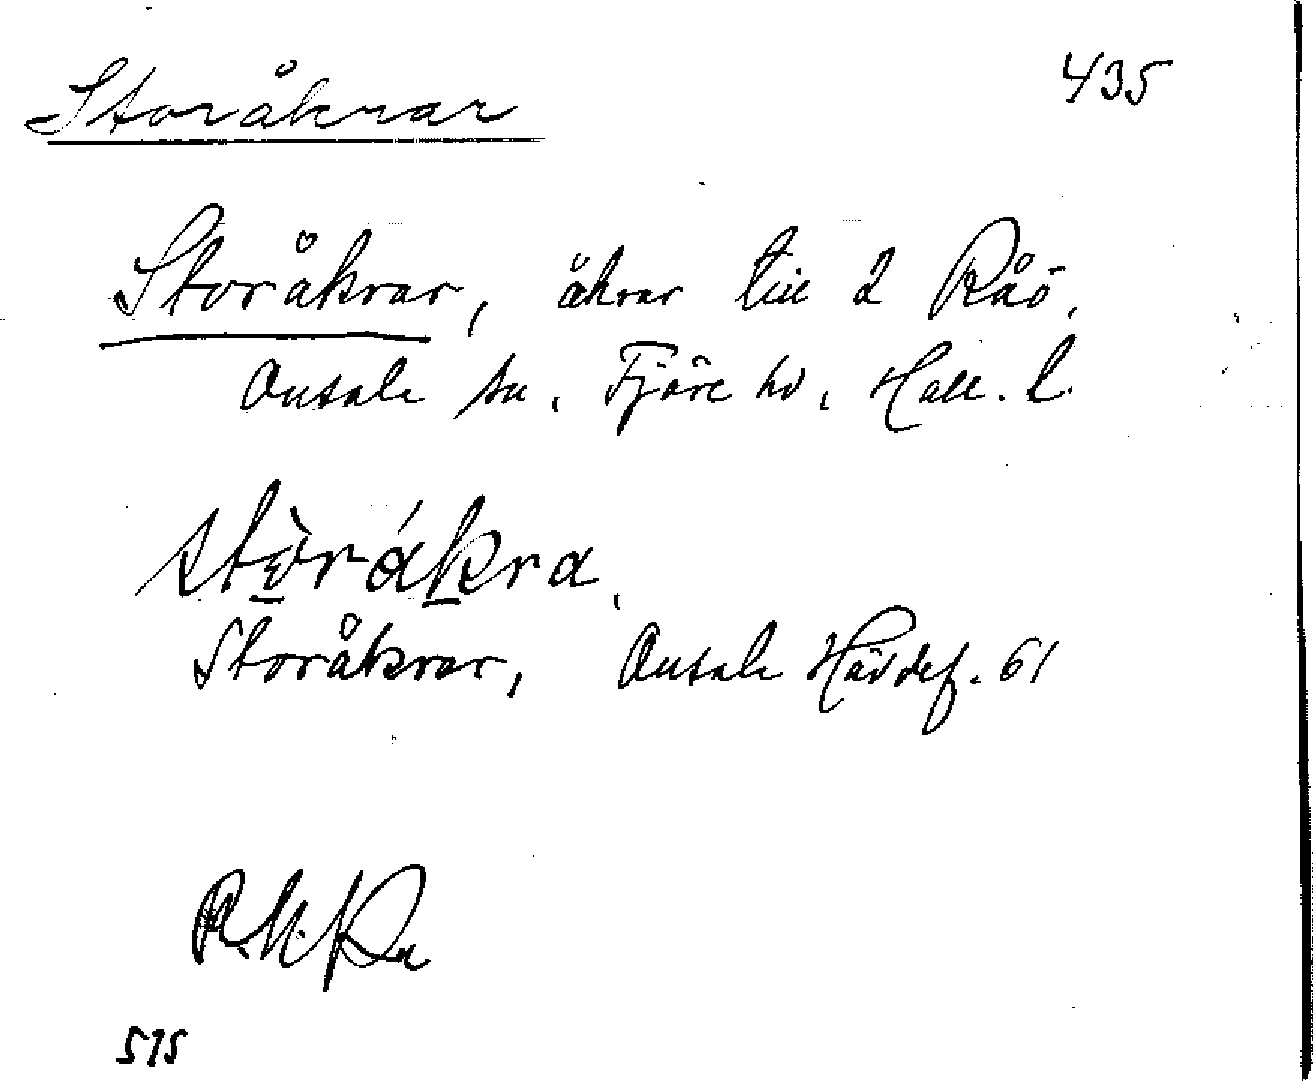 Storåkrar 435
Storåkrar, åkrar till 2 Råö,
Onsala sn, Fjäre hd, Hall. l.
stòrákra,
Storåkrar, Onsala Hävdef. 61
575